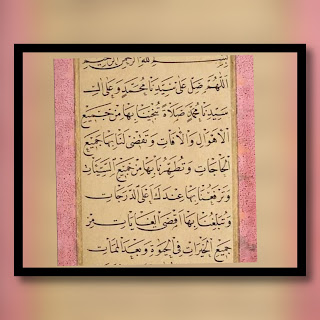 بسم الله الرحمن الرحيم
اللهم صل على سيدنا محمد وعلى ال
سيدنا محمد صلاة تنجينا بها من جميع
الاهوال والافات وتقضى لنا بها جميع
الحاجات وتطهرنا بها من جميع السيئات
وترفعنا بها عندك اعلى الدرجات
وتبلغنا بها اقصى الغايات من
جميع الخيرات فى الحيوة وبعد الممات